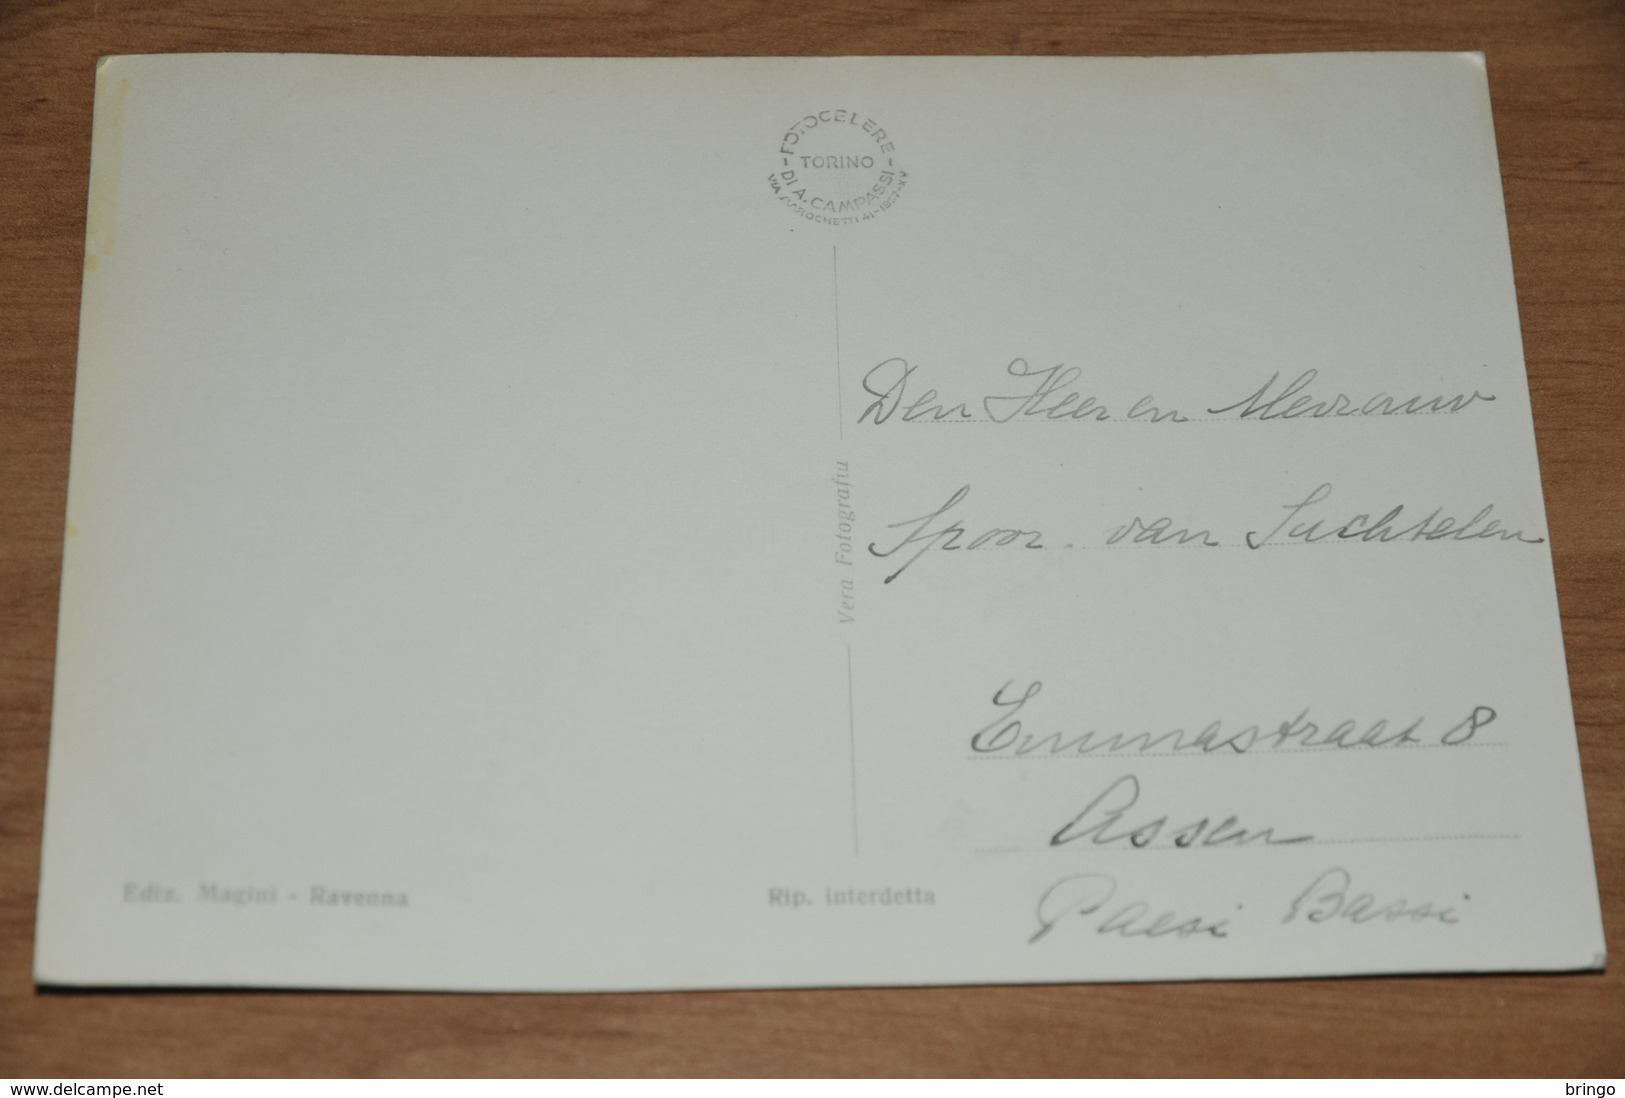 FOTOCELERE
TORINO
DI A. CAMPASSI
VIA MAROCHETTI 41-1937-XV
Den Heer en Mevrouw
Spoor - van Suchtelen
Vera Fotografia
Emmastraat 8
Assen
Paesi Bassi
Ediz. Magini - Ravenna
Rip. interdetta
www.delcampe.net
bringo